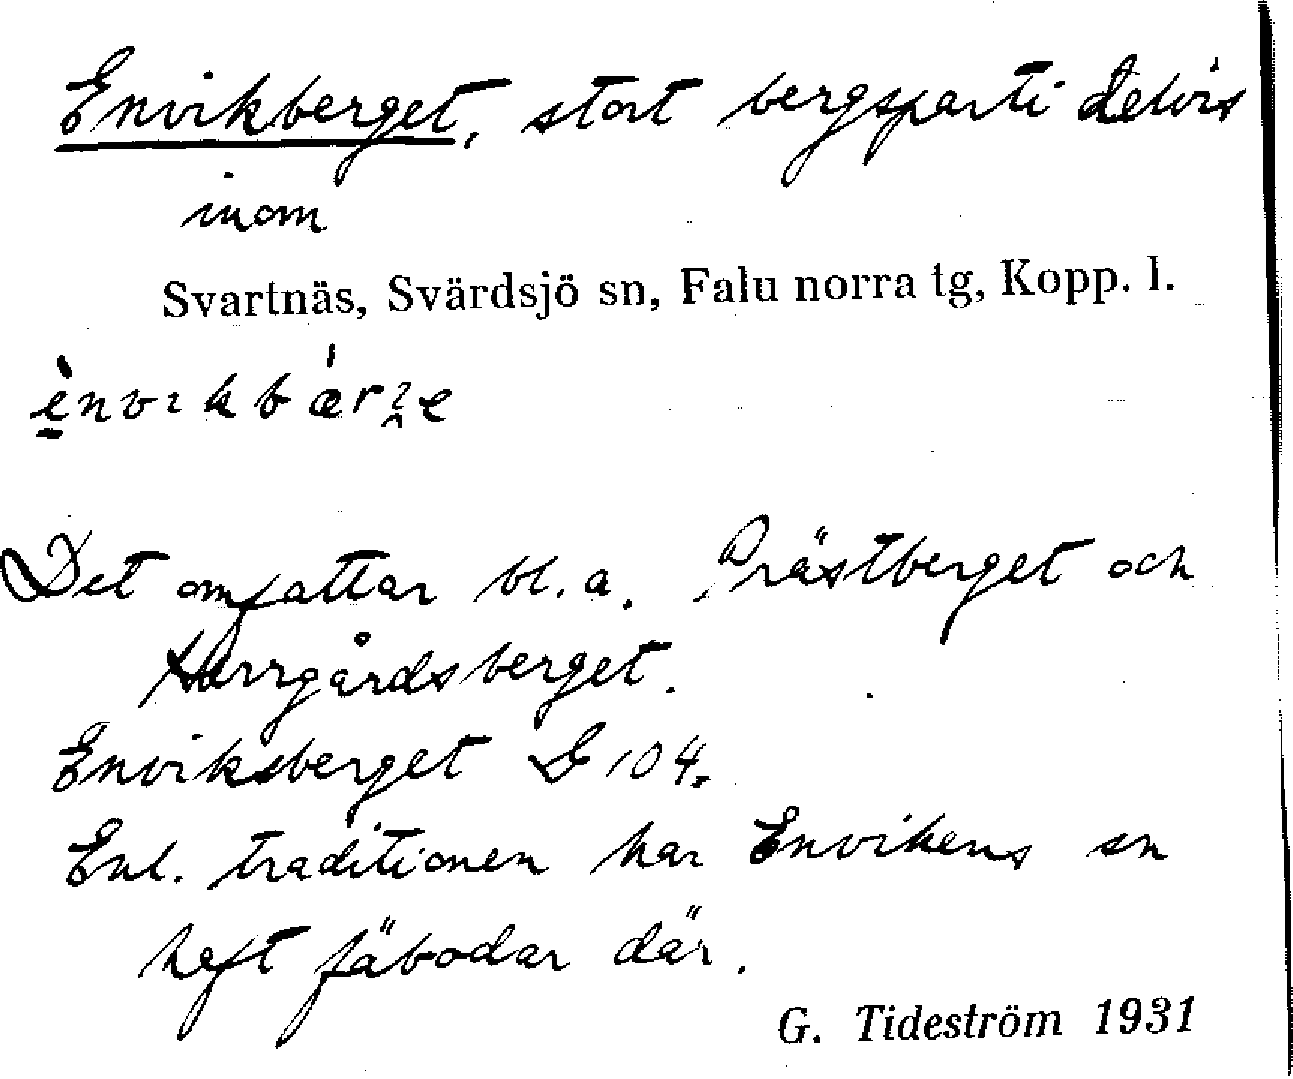 Envikberget, stort bergsparti delvis
inom
Svartnäs, Svärdsjö sn, Falu norra tg, Kopp. l.
Det omfattar bl. a. Prästberget och
Herrgårdsberget.
Enviksberget G 104.
Enl. traditionen har Envikens sn
heft fäbodar där.
G. Tideström 1931